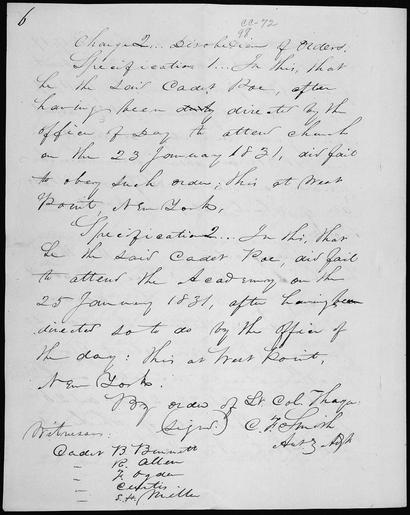 6
CC-72
98
Charge 2... Disobedience of Orders.
Specification 1... In this, that
he the said Cadet Poe, after
having been duly directed by the
officer of Day to attend church
on the 23 January 1831, did fail
to obey such order; this at West
Point New York.
Specification 2.... In this, that
he the said Cadet Poe, did fail
to attend the Academy on the
25 January 1831, after having been
directed so to do by the officer of
the day: this at West Point,
New York.
By order of Lt. Col. Thayer
(signd.) C. F. Smith
Witnesses
Cadet B. Bennett
— R. Allen
— F. Ogden
— Curtis
— S. H. Miller